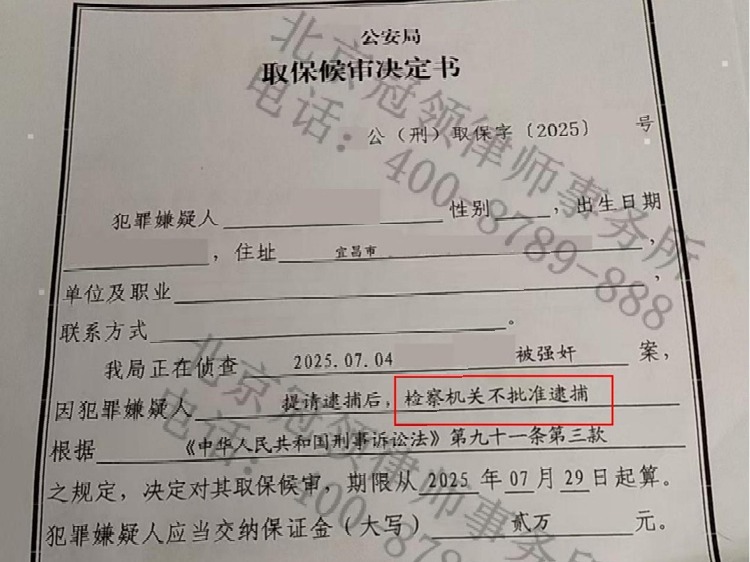 公安局
取保候审决定书
公（刑）取保字〔2025〕 号
犯罪嫌疑人 性别 ，出生日期
，住址 宜昌市 ，
单位及职业 ，
联系方式 。
我局正在侦查 2025.07.04 被强奸 案，
因犯罪嫌疑人 提请逮捕后，检察机关不批准逮捕
根据 《中华人民共和国刑事诉讼法》第九十一条第三款
之规定，决定对其取保候审，期限从 2025 年 07 月 29 日起算。
犯罪嫌疑人应当交纳保证金（大写） 贰万 元。
北京冠领律师事务所
电话：400-8789-888
北京冠领律师事务所
电话：400-8789-888